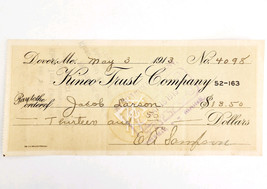 Dover, Me. May 3 1913 No. 4098
Kineo Trust Company 52-163
Pay to the order of Jacob Larson $13.50
Thirteen and 50 Dollars